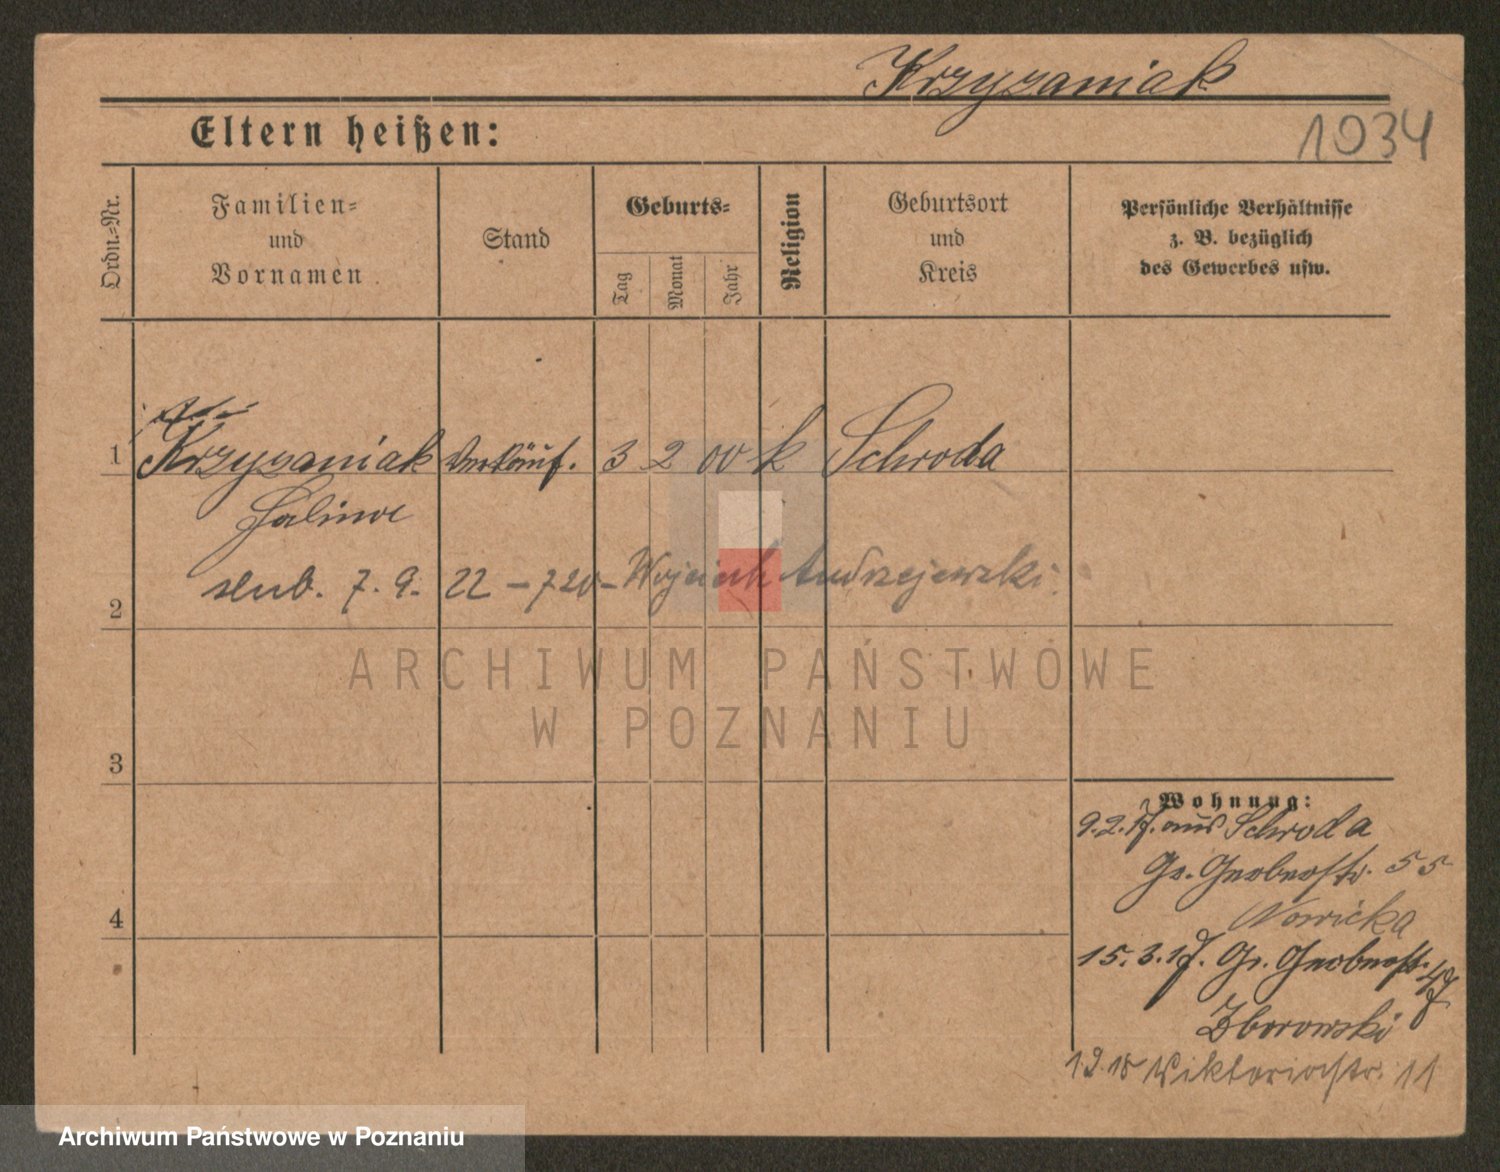 Krzyzaniak
1034
Eltern heißen:
Ordn.-Nr.
Familien-
und
Vornamen
Stand
Geburts-
Tag
Monat
Jahr
Religion
Geburtsort
und
Kreis
Persönliche Verhältnisse
z. B. bezüglich
des Gewerbes usw.
1 Krzyzaniak Verkäuf. 3 2 00 k Schroda
Halina
ślub. 7. 9. 22 – 720 – Wojciech Andrzejewski
2
3
4
ARCHIWUM PAŃSTWOWE
W POZNANIU
Wohnung:
9.2.17. aus Schroda
Gr. Gerberstr. 55
Nowicka
15.3.17. Gr. Gerberstr. 47
Zborowski
1.2.18 Viktoriastr. 11
Archiwum Państwowe w Poznaniu